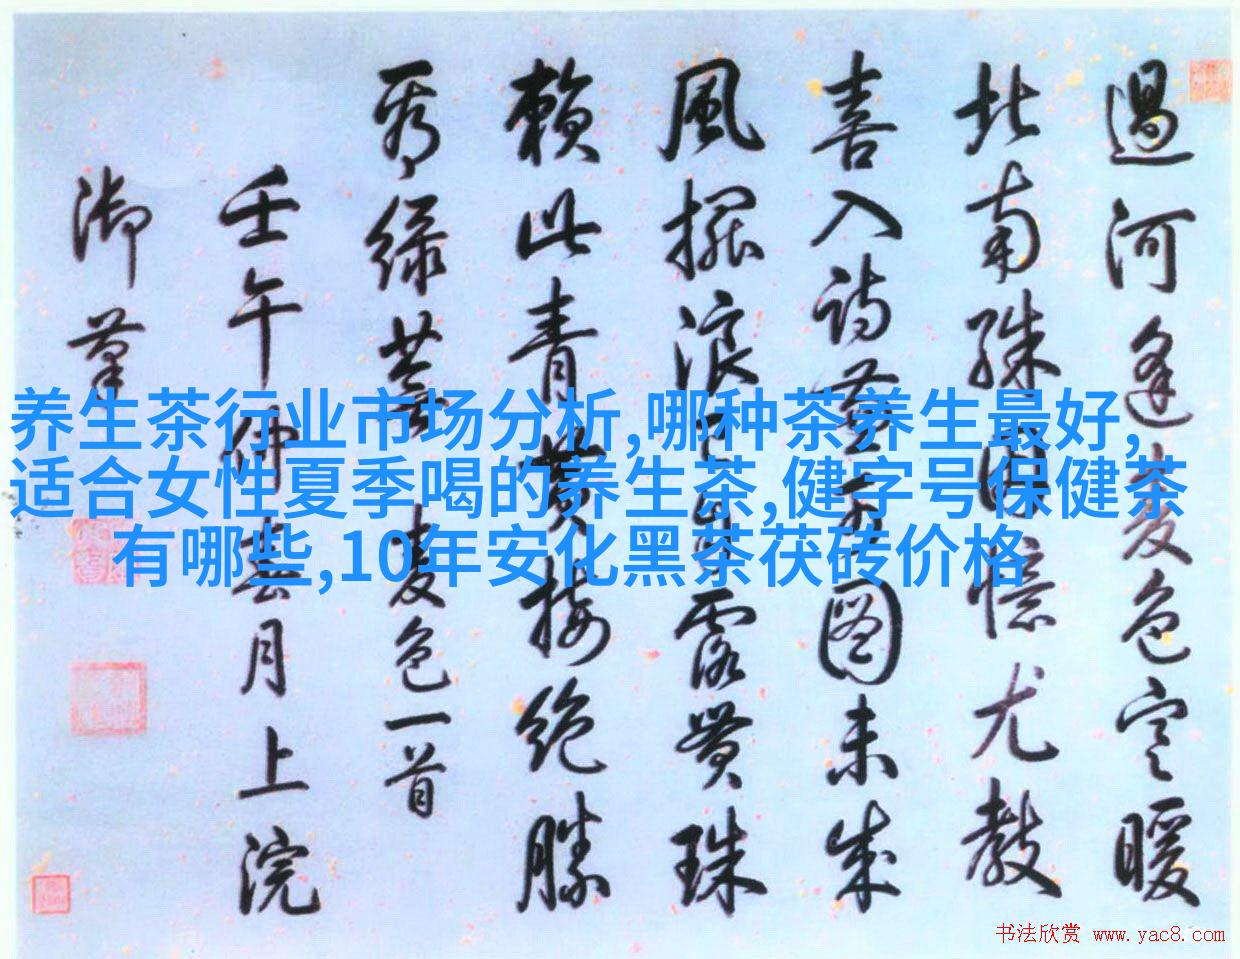 養生茶行业市场分析,哪种茶养生最好,
适合女性夏季喝的养生茶,健字号保健茶
有哪些,10年安化黑茶茯砖价格
過河逢麦色暖
北南殊憶尤教
喜入詩圖未成
風擺浪露貫珠
賴此青黄接絶勝
秀緑麦色一首
壬午仲春月上浣
御筆
书法欣赏 www.yac8.com